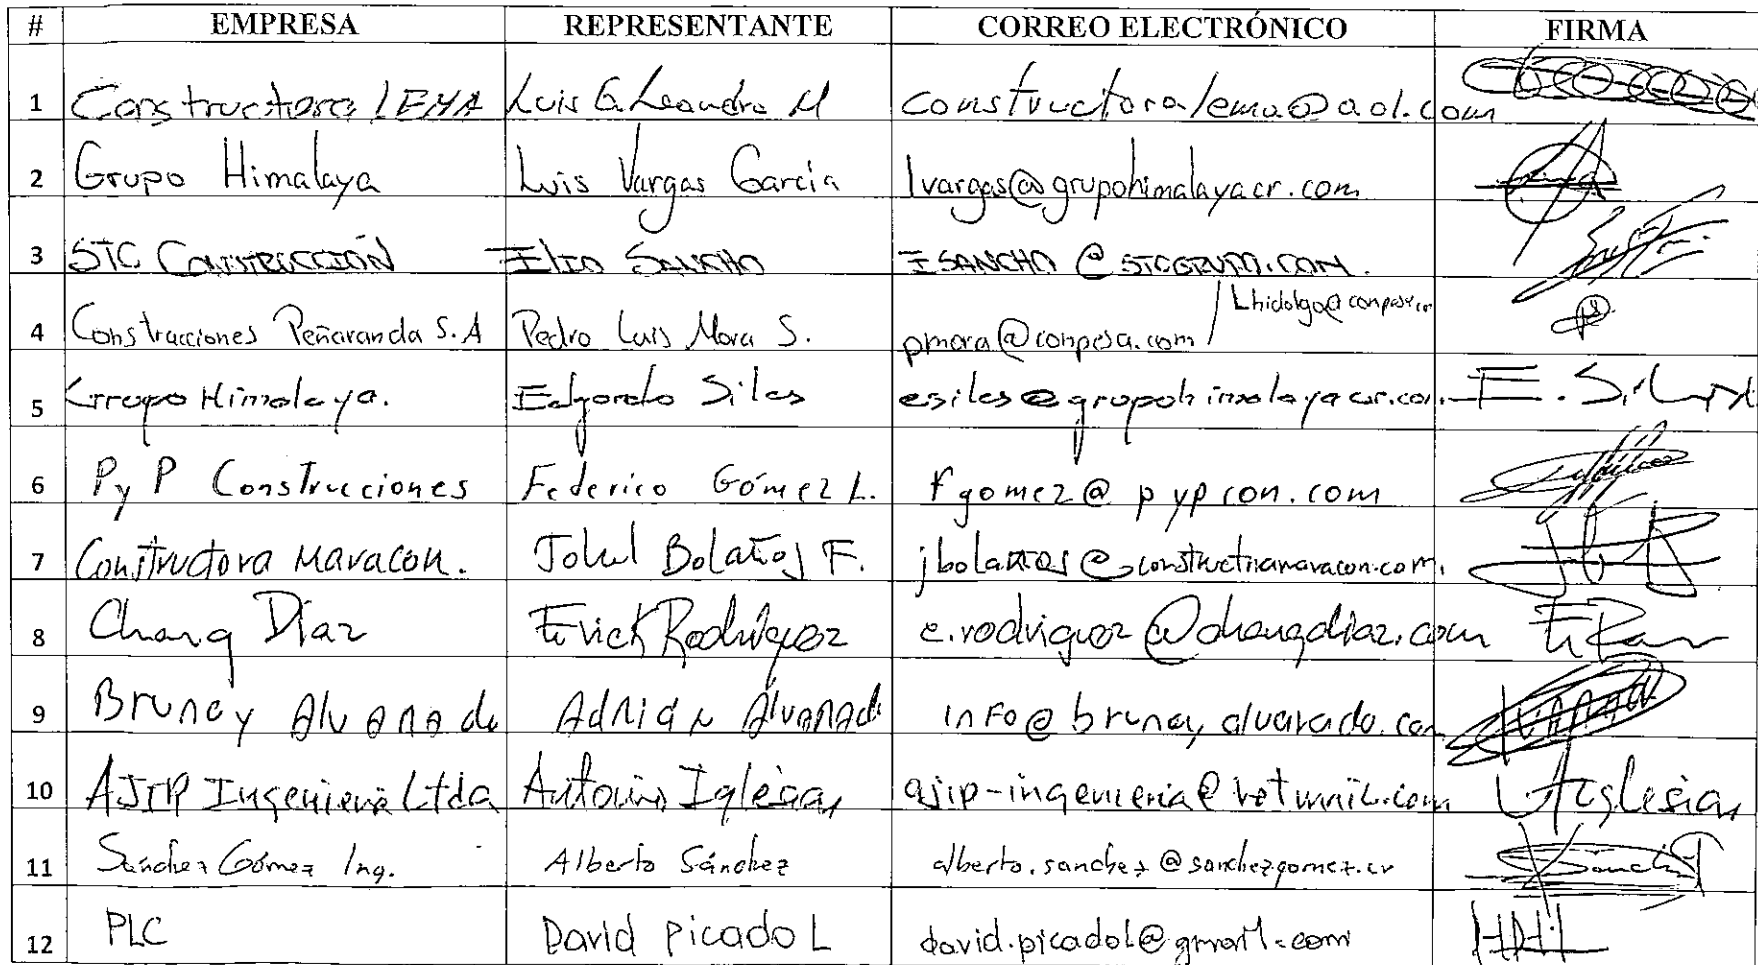 # EMPRESA REPRESENTANTE CORREO ELECTRÓNICO FIRMA
1 Constructora LEMA Luis G. Leandro M constructoralema@aol.com
2 Grupo Himalaya Luis Vargas García lvargas@grupohimalayacr.com
3 STC CONSTRUCCIÓN SANCHO ISANCHO @ STCGRUPO.COM.
4 Construcciones Peñaranda S.A Pedro Luis Mora S. pmora@conpesa.com /
5 Grupo Himalaya. Edgardo Siles esiles@grupohimalayacr.com E. Siles
6 P y P Construcciones Federico Gómez L. fgomez@pypcon.com
7 Constructora Maracon. Bolaños F. jbolanos@constructoramaracon.com.
8 Chang Díaz Erick Rodríguez e.rodriguez@changdiaz.com
9 Brunc y Alvarado Adrián Alvarado info@bruncyalvarado.com
10 AJIP Ingeniería Ltda Antonio Iglesias ajip-ingenieria@hotmail.com Iglesias
11 Sánchez Gómez Ing. Alberto Sánchez alberto.sanchez@sanchezgomez.cr
12 PLC David Picado L david.picadol@gmail.com